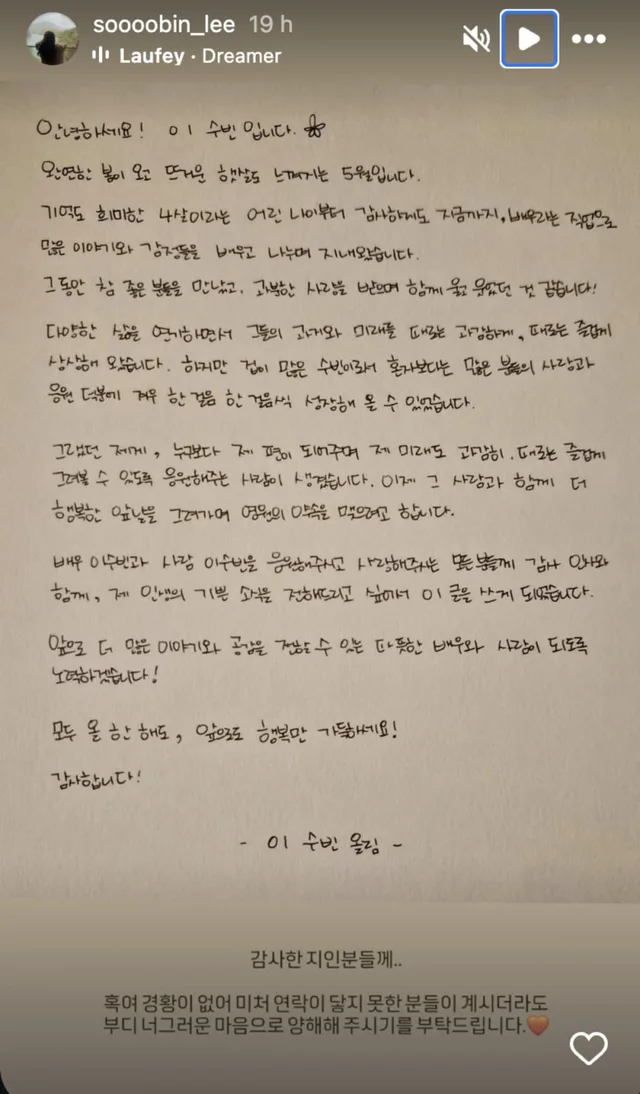 soooobin_lee 19 h
Laufey · Dreamer
안녕하세요! 이 수빈 입니다.
완연한 봄이 오고 뜨거운 햇살도 느껴지는 5월입니다.
기억도 희미한 4살이라는 어린 나이부터 감사하게도 지금까지, 배우라는 직업으로
많은 이야기와 감정들을 배우고 나누며 지내왔습니다.
그동안 참 좋은 분들을 만났고, 과분한 사랑을 받으며 함께 울고 웃었던 것 같습니다!
다양한 삶을 연기하면서 그들의 과거와 미래를 때로는 과감하게, 때로는 즐겁게
상상해 왔습니다. 하지만 겁이 많은 수빈이라서 혼자보다는 많은 분들의 사랑과
응원 덕분에 겨우 한 걸음 한 걸음씩 성장해 올 수 있었습니다.
그랬던 제게, 누구보다 제 편이 되어주며 제 미래도 과감히, 때로는 즐겁게
그려볼 수 있도록 응원해주는 사람이 생겼습니다. 이제 그 사람과 함께 더
행복한 앞날을 그려가며 영원의 약속을 맺으려고 합니다.
배우 이수빈과 사람 이수빈을 응원해주시고 사랑해주시는 모든 분들께 감사 인사와
함께, 제 인생의 기쁜 소식을 전해드리고 싶어서 이 글을 쓰게 되었습니다.
앞으로 더 많은 이야기와 공감을 전할 수 있는 따뜻한 배우와 사람이 되도록
노력하겠습니다!
모두 올 한 해도, 앞으로도 행복만 가득하세요!
감사합니다!
- 이 수빈 올림 -
감사한 지인분들께..
혹여 경황이 없어 미처 연락이 닿지 못한 분들이 계시더라도
부디 너그러운 마음으로 양해해 주시기를 부탁드립니다.🧡